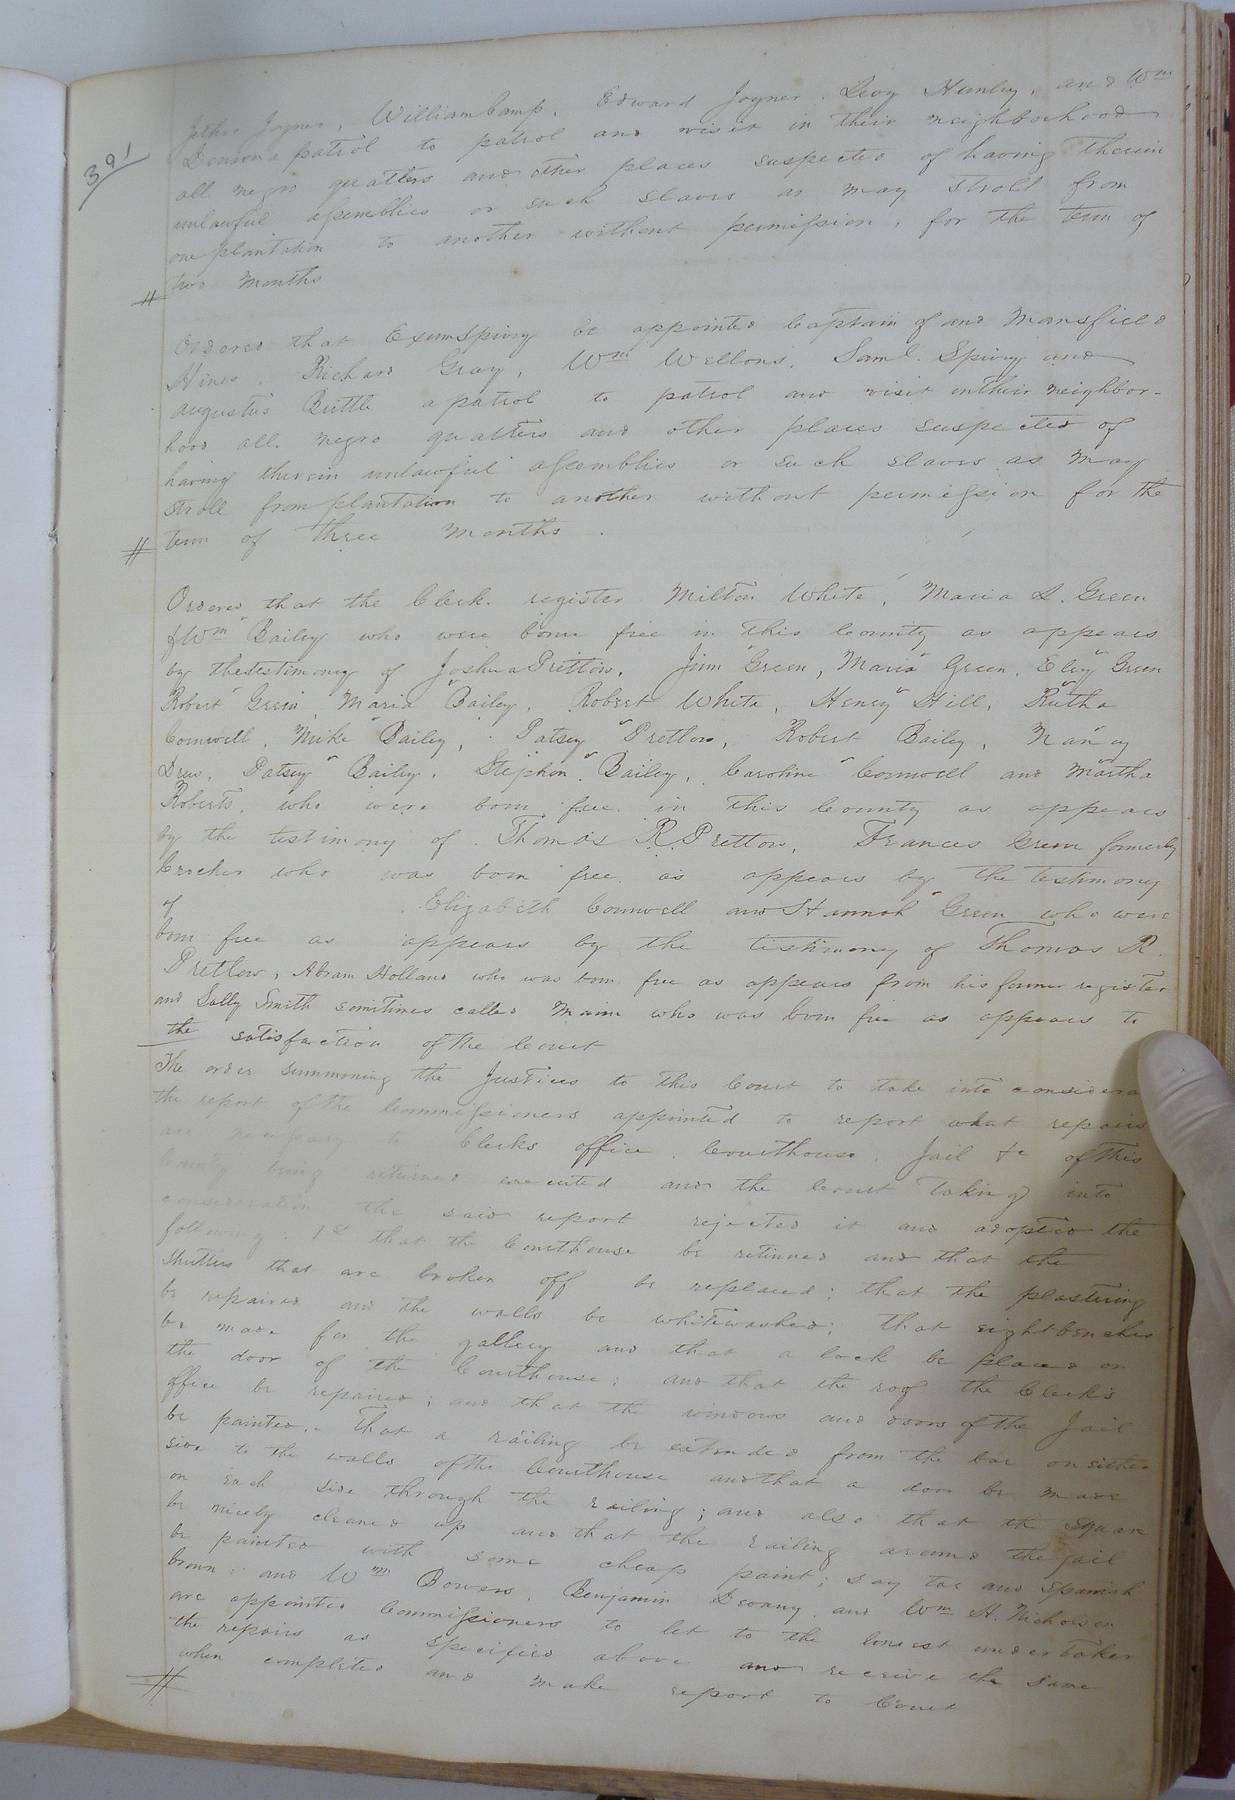 391
Jethro Joyner, William Camp, Edward Joyner, Levy Hunly, and Wm
Denson a patrol to patrol and visit in their neighborhood
all negro quatters and other places suspected of having therein
unlawful assemblies or such slaves as may stroll from
one plantation to another without permission, for the term of
two months
Ordered that Exum Spivy be appointed Captain of and Mansfield
Hines, Richard Gray, Wm Wellons, Saml. Spivy and
Augustus Buttle a patrol to patrol and visit in their neighbor-
hood all negro quatters and other places suspected of
having therein unlawful assemblies or such slaves as may
stroll from plantation to another without permission for the
term of three months.
Ordered that the Clerk register Milton White, Maria L. Green
& Wm Bailey who were born free in this County as appears
by the testimony of Joshua Pretlow, Jinn Green, Maria Green, Eliy Green
Robert Green, Maria Bailey, Robert White, Henry Hill, Rutha
Cornwell, Mike Bailey, Patsey Pretlow, Robert Bailey, Nancy
Drew, Patsey Bailey, Stephen Bailey, Caroline Cornwell and Martha
Roberts, who were born free in this County as appears
by the testimony of Thomas R. Pretlow, Frances Green formerly
Crocker who was born free as appears by the testimony
of Elizabeth Cornwell and Hannah Green who were
born free as appears by the testimony of Thomas R.
Pretlow, Abram Holland who was born free as appears from his former register
and Sally Smith somitimes called Maim who was born free as appears to
the satisfaction of the Court
The order summoning the Justices to this Court to take into considera
the report of the Commissioners appointed to report what repairs
are necessary to Clerks office, Courthouse, Jail &c of this
County being returned executed and the Court taking into
consideration the said report rejected it and adopted the
following 1st that the Courthouse be retinned and that the
shutters that are broken off be replaced; that the plastering
be repaired and the walls be whitewashed; that eight benches
be made for the gallery and that a lock be placed on
the door of the Courthouse; and that the roof the Clerk's
office be repaired; and that the windows and doors of the Jail
be painted. That a railing be extended from the bar on either
side to the walls of the Courthouse and that a door be made
on each side through the railing; and also that the square
be nicely cleaned up and that the railing around the jail
be painted with some cheap paint; say tar and Spanish
brown; and Wm Bowers, Benjamin Devany and Wm H. Nicholson
are appointed Commissioners to let to the lowest undertaker
the repairs as specified above and receive the same
when completed and make report to Court